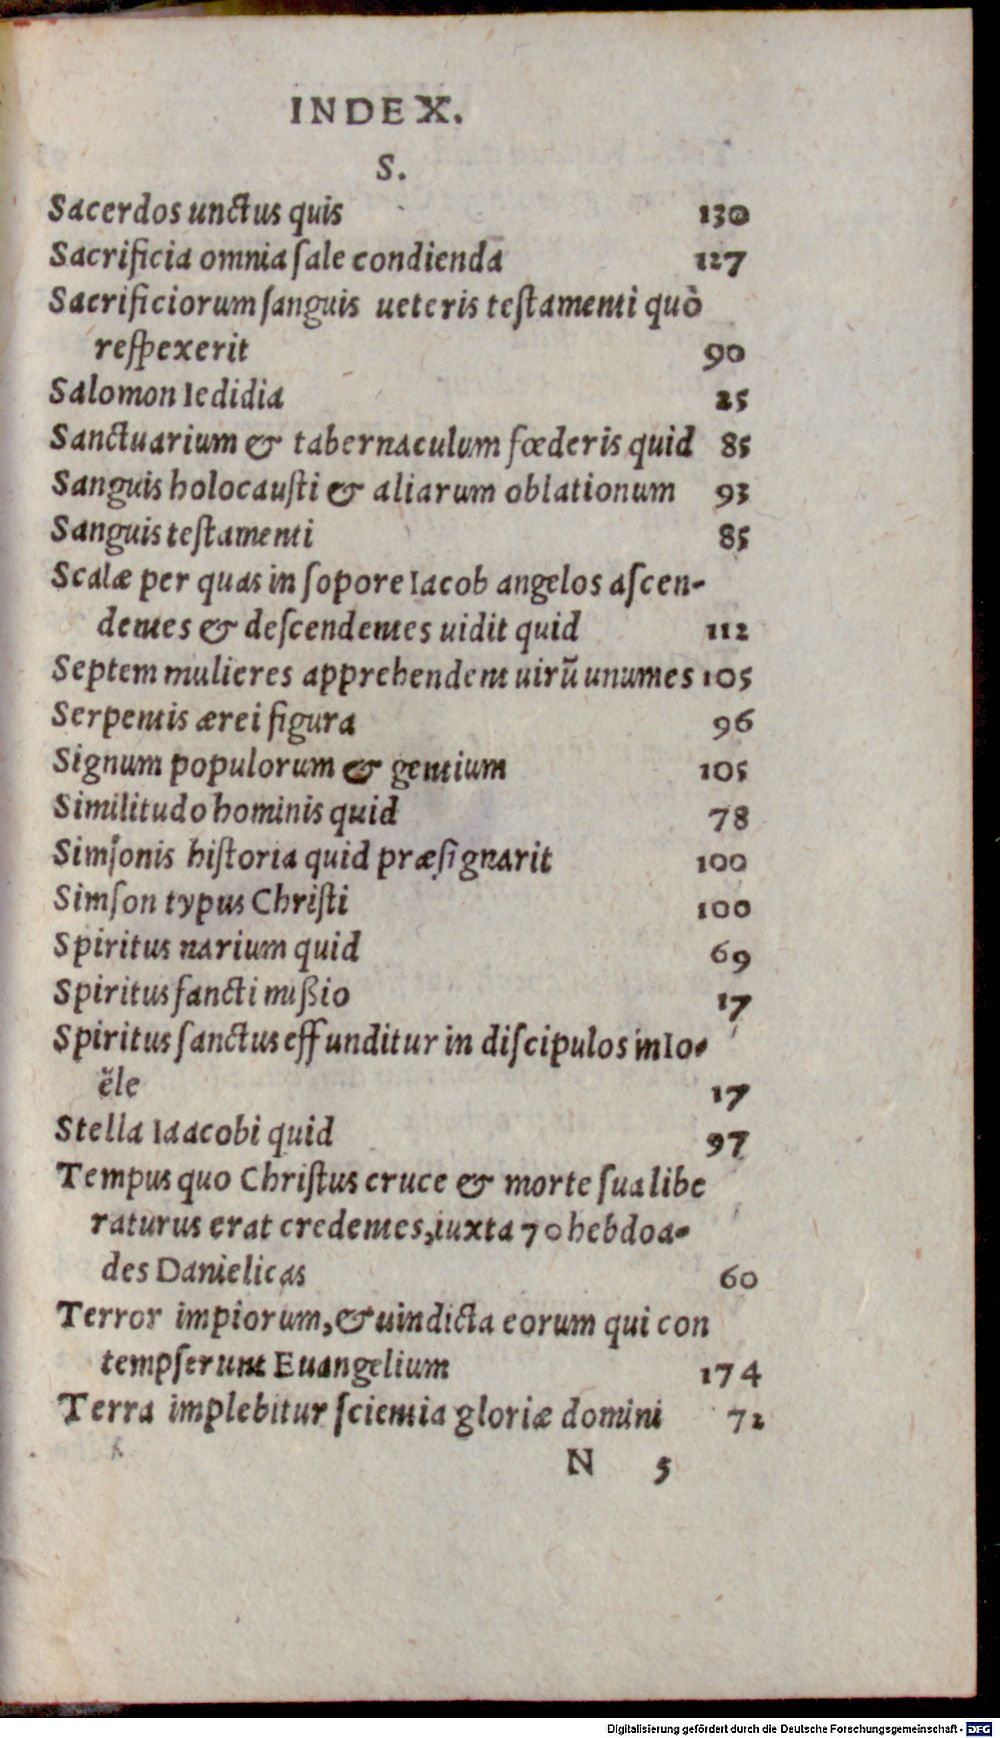 INDEX.
S.
Sacerdos unctus quis 130
Sacrificia omnia ſale condienda 127
Sacrificiorum ſanguis ueteris teſtamenti quò
reſpexerit 90
Salomon Iedidia 25
Sanctuarium & tabernaculum fœderis quid 85
Sanguis holocauſti & aliarum oblationum 93
Sanguis teſtamenti 85
Scalæ per quas in ſopore Iacob angelos aſcen-
dentes & deſcendentes uidit quid 112
Septem mulieres apprehendent uirũ unumes 105
Serpentis ærei figura 96
Signum populorum & gentium 105
Similitudo hominis quid 78
Simſonis hiſtoria quid præſignarit 100
Simſon typus Chriſti 100
Spiritus narium quid 69
Spiritus ſancti mißio 17
Spiritus ſanctus effunditur in diſcipulos in Io-
ële 17
Stella Iaacobi quid 97
Tempus quo Chriſtus cruce & morte ſua libe
raturus erat credentes, iuxta 70 hebdoa-
des Danielicas 60
Terror impiorum, & uindicta eorum qui con
tempſerunt Euangelium 174
Terra implebitur ſcientia gloriæ domini 72
N 5
Digitalisierung gefördert durch die Deutsche Forschungsgemeinschaft - DFG